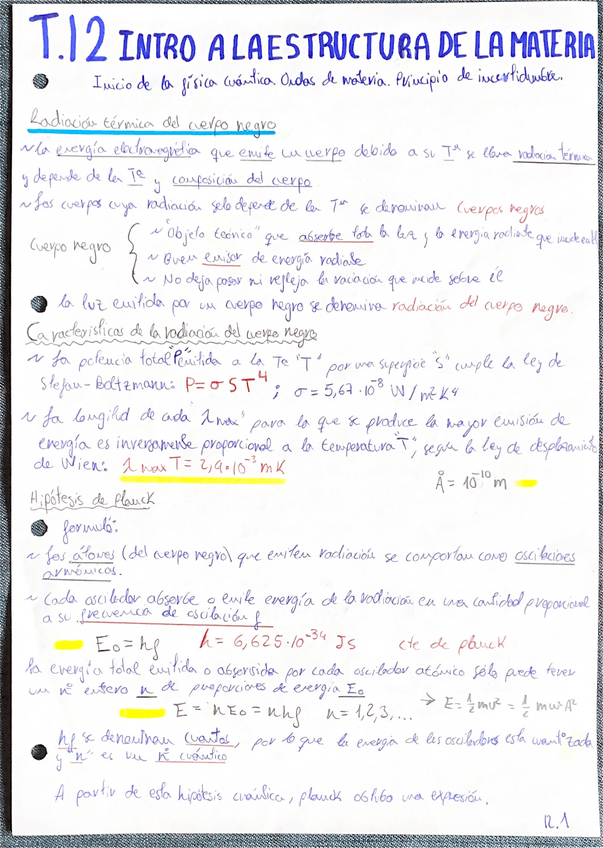 T.12 INTRO A LA ESTRUCTURA DE LA MATERIA
Inicio de la física cuántica. Ondas de materia. Principio de incertidumbre.
Radiación térmica del cuerpo negro
~ La energía electromagnética que emite un cuerpo debido a su Tª se llama radiación térmica
y depende de la Tª y composición del cuerpo.
~ Los cuerpos cuya radiación solo depende de la Tª se denominan cuerpos negros
~ "Objeto teórico" que absorbe toda la luz y la energía radiante que incide
cuerpo negro
~ Buen emisor de energía radiante
~ No deja pasar ni refleja la radiación que incide sobre él
la luz emitida por un cuerpo negro se denomina radiación del cuerpo negro.
Características de la radiación del cuerpo negro
~ La potencia total "P" emitida a la Tª "T" por una superficie "S" cumple la ley de
Stefan-Boltzmann: P = σ S T⁴ ; σ = 5,67·10⁻⁸ W/m²K⁴
~ La longitud de onda "λ max" para la que se produce la mayor emisión de
energía es inversamente proporcional a la temperatura "T", según la ley de desplazamiento
de Wien: λ max T = 2,9·10⁻³ mK
Å = 10⁻¹⁰ m
Hipótesis de Planck
formuló:
~ Los átomos (del cuerpo negro) que emiten radiación se comportan como osciladores
armónicos.
~ Cada oscilador absorbe o emite energía de la radiación en una cantidad proporcional
a su frecuencia de oscilación f
E₀ = hf h = 6,625·10⁻³⁴ JS cte de planck
la energía total emitida o absorbida por cada oscilador atómico sólo puede tener
un nº entero n de porciones de energía E₀
→ E = ½ mv² = ½ mω²A²
E = nE₀ = nhf n = 1,2,3,...
hf se denominan cuantos, por lo que la energía de los osciladores esta cuantizada
y "n" es un nº cuántico
A partir de esta hipótesis cuántica, planck obtubo una expresión.
12.1